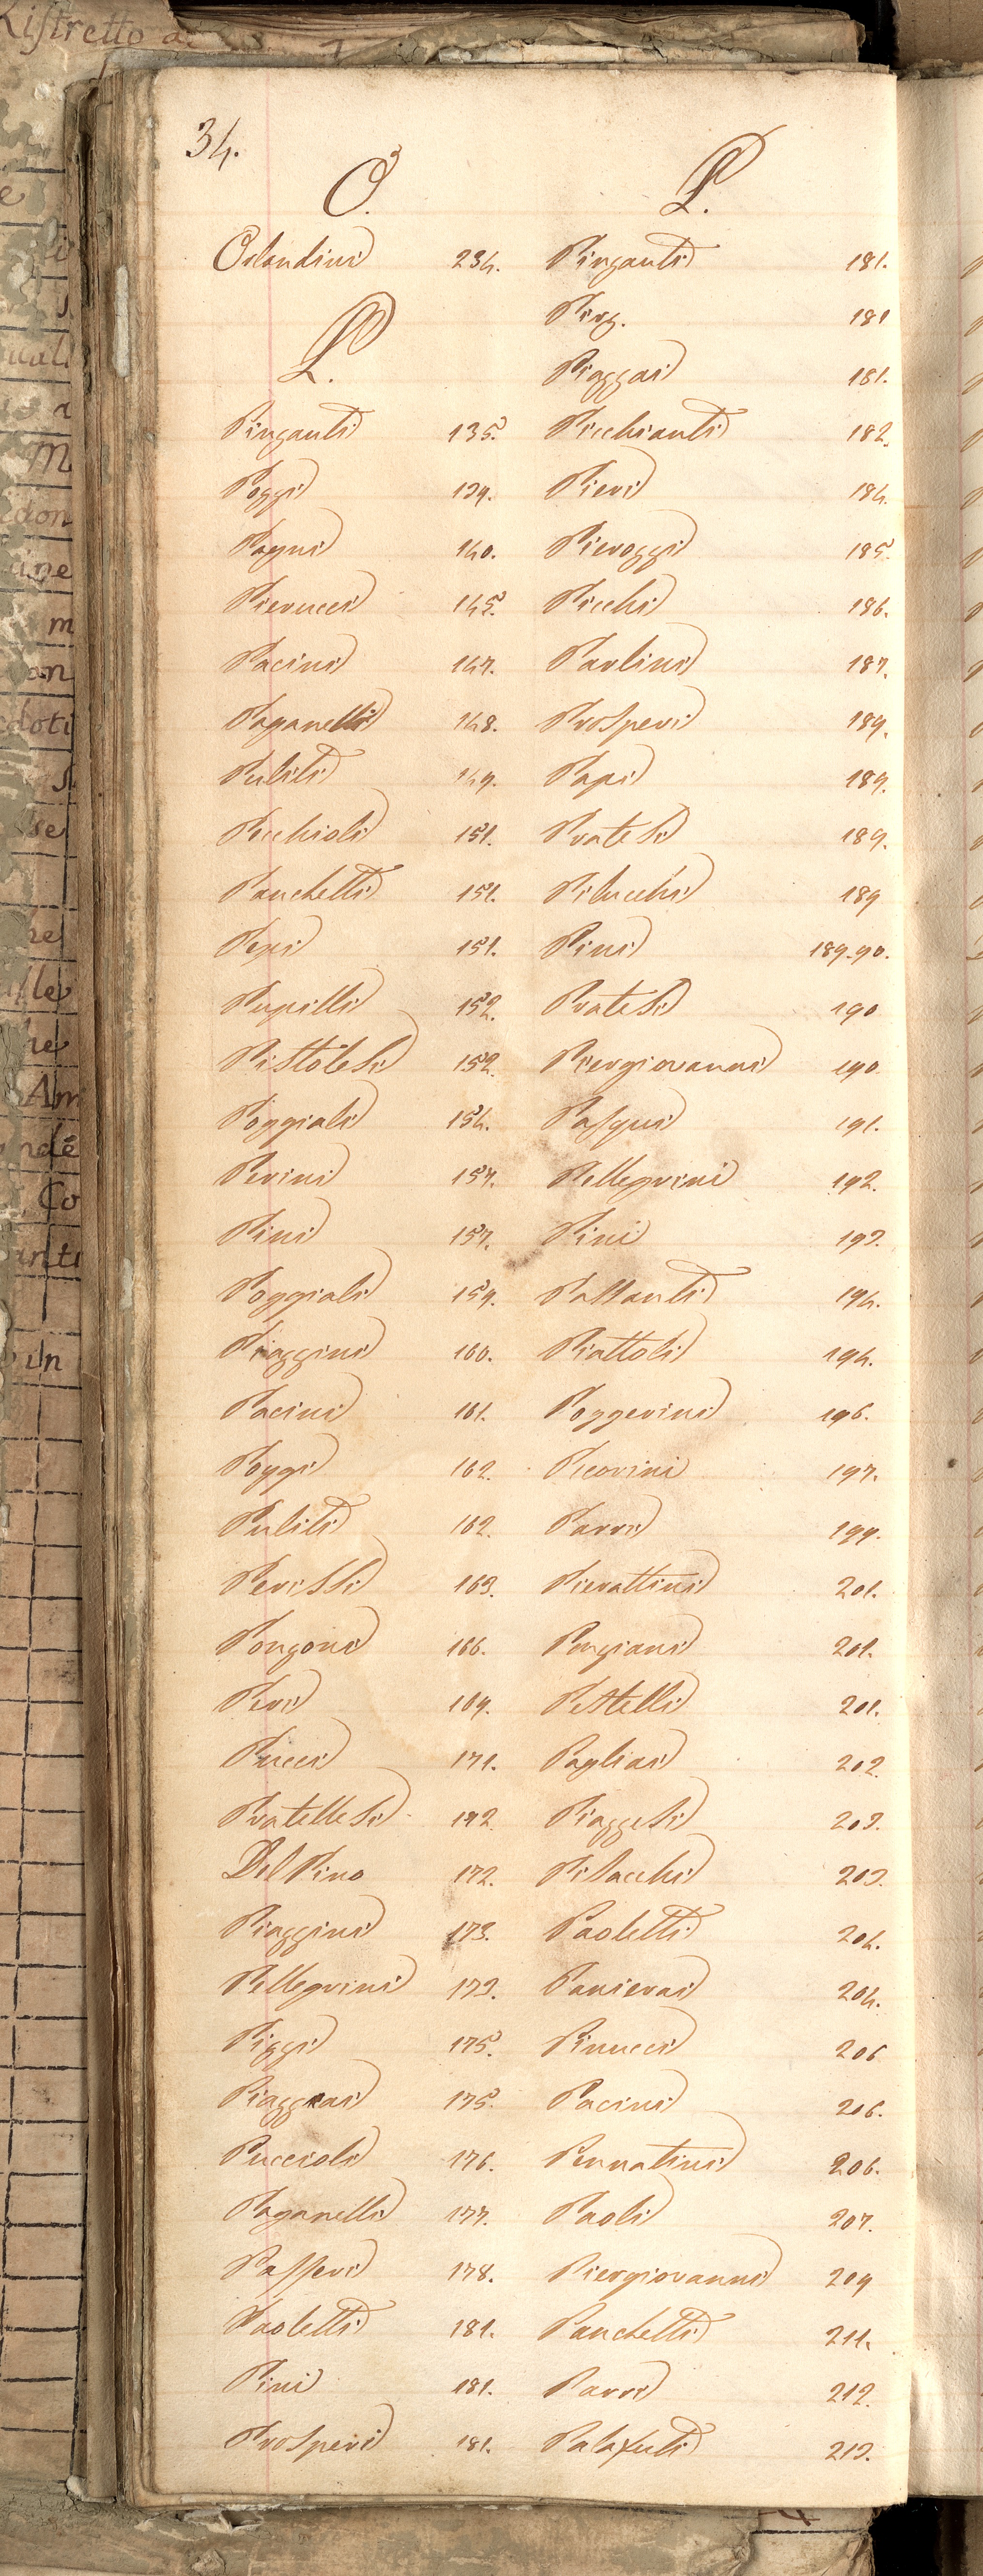 Ristretto
34.
O.
Orlandini 234.
P.
Pinganti 135.
Poggi 139.
Pagni 140.
Pierucci 145.
Pacini 147.
Paganelli 148.
Puliti 149.
Picchioli 151.
Panchetti 151.
Pepi 151.
Pupilli 152.
Pistolesi 152.
Poggiali 154.
Perini 157.
Pini 157.
Poggiali 159.
Piaggini 160.
Pacini 161.
Poggi 162.
Puliti 162.
Perissi 163.
Pongoni 166.
Peri 169.
Pucci 171.
Pratellesi 172.
Del Pino 172.
Piaggini 173.
Pellegrini 173.
Piggi 175.
Piaggiai 175.
Puccioli 176.
Paganelli 177.
Passeri 178.
Paoletti 181.
Pini 181.
Prosperi 181.
P.
Pinganti 181.
Ping. 181
Piaggai 181.
Picchianti 182.
Pieri 184.
Pieroggi 185.
Picchi 186.
Paolini 187.
Prosperi 189.
Papi 189.
Pratesi 189.
Pilucchi 189
Pini 189.90.
Pratesi 190
Piergiovanni 190
Pasqui 191.
Pellegrini 192.
Pini 193.
Passanti 194.
Piattoli 194.
Poggerini 196.
Pecorini 197.
Parri 199.
Pierattini 201.
Porgiani 201.
Pestelli 201.
Pagliai 202.
Piaggesi 203.
Pistacchi 203.
Paoletti 204.
Panierai 204.
Pinucci 206
Pacini 206.
Pennatini 206.
Paoli 207.
Piergiovanni 209
Panchetti 211.
Parri 212.
Palafuti 213.